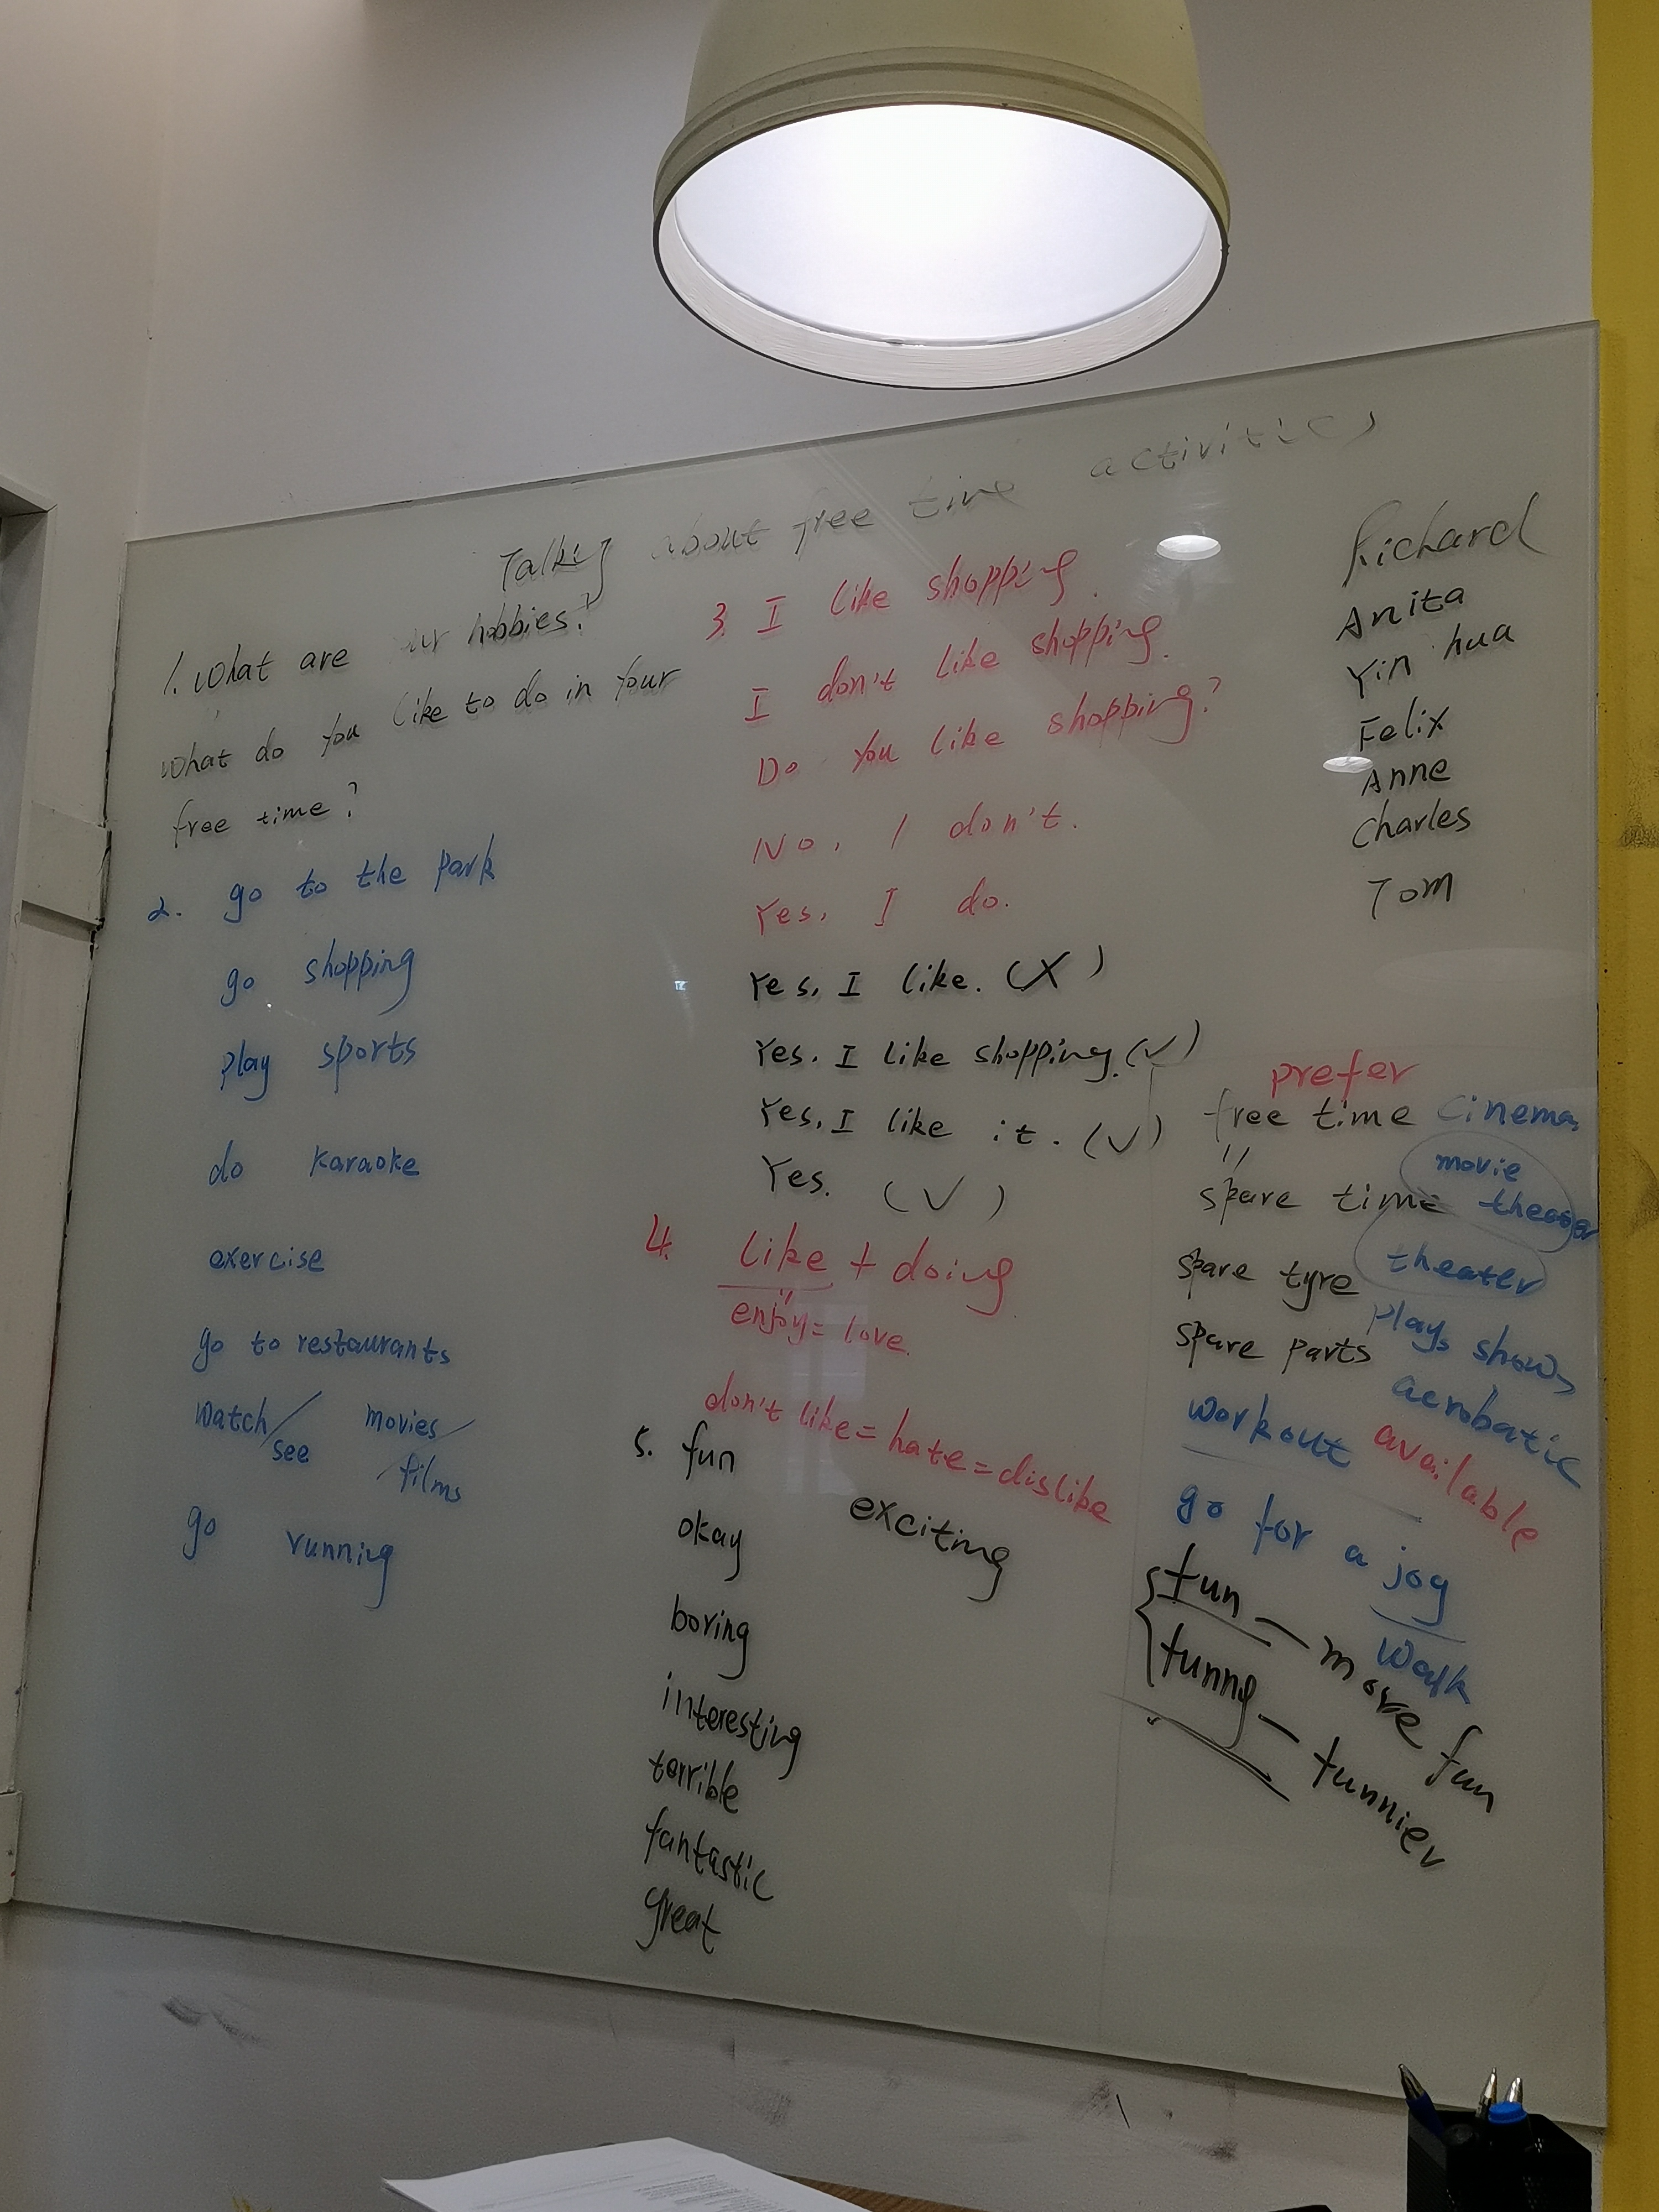 Talking about free time activities
1. What are hobbies?
What do you like to do in your
free time?
2. go to the park
go shopping
play sports
do karaoke
exercise
go to restaurants
watch/see movies/films
go running
3. I like shopping.
I don't like shopping.
Do you like shopping?
No, I don't.
Yes, I do.
Yes, I like. (X)
Yes. I like shopping. (✓)
Yes, I like it. (✓)
Yes. (✓)
4. like + doing
"
enjoy = love.
don't like = hate = dislike
5. fun
exciting
okay
boring
interesting
terrible
fantastic
great
Richard
Anita
Yin hua
Felix
Anne
Charles
Tom
prefer
free time
"
spare time
spare tyre
spare parts
cinema
movie
theater
theater
plays shows
acrobatic
workout
available
go for a jog
walk
fun — more fun
funny — funnier